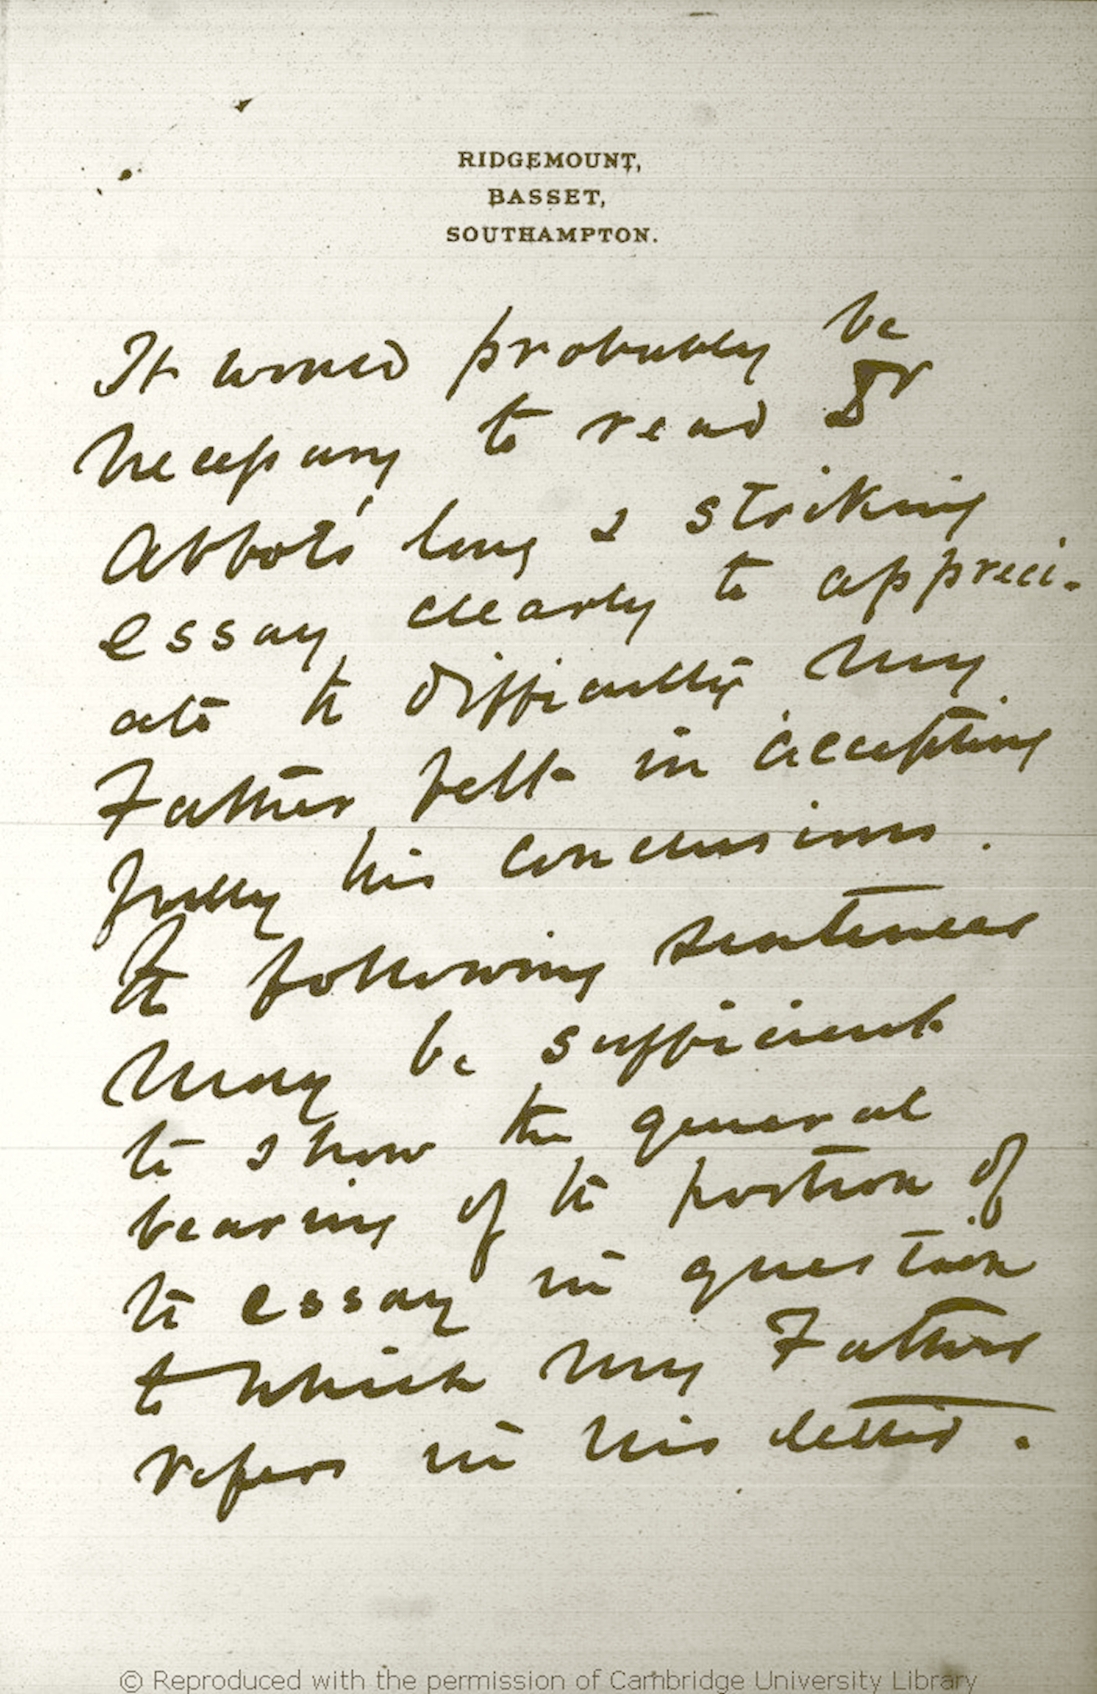 RIDGEMOUNT,
BASSET,
SOUTHAMPTON.
It would probably be
necessary to read Dr
Abbots' long & striking
essay clearly to appreci-
ate the difficulties my
Father felt in accepting
fully his conclusions.
The following sentences
may be sufficient
to show the general
bearing of the portion of
the essay in question
to which my Father
refers in his letter.
© Reproduced with the permission of Cambridge University Library